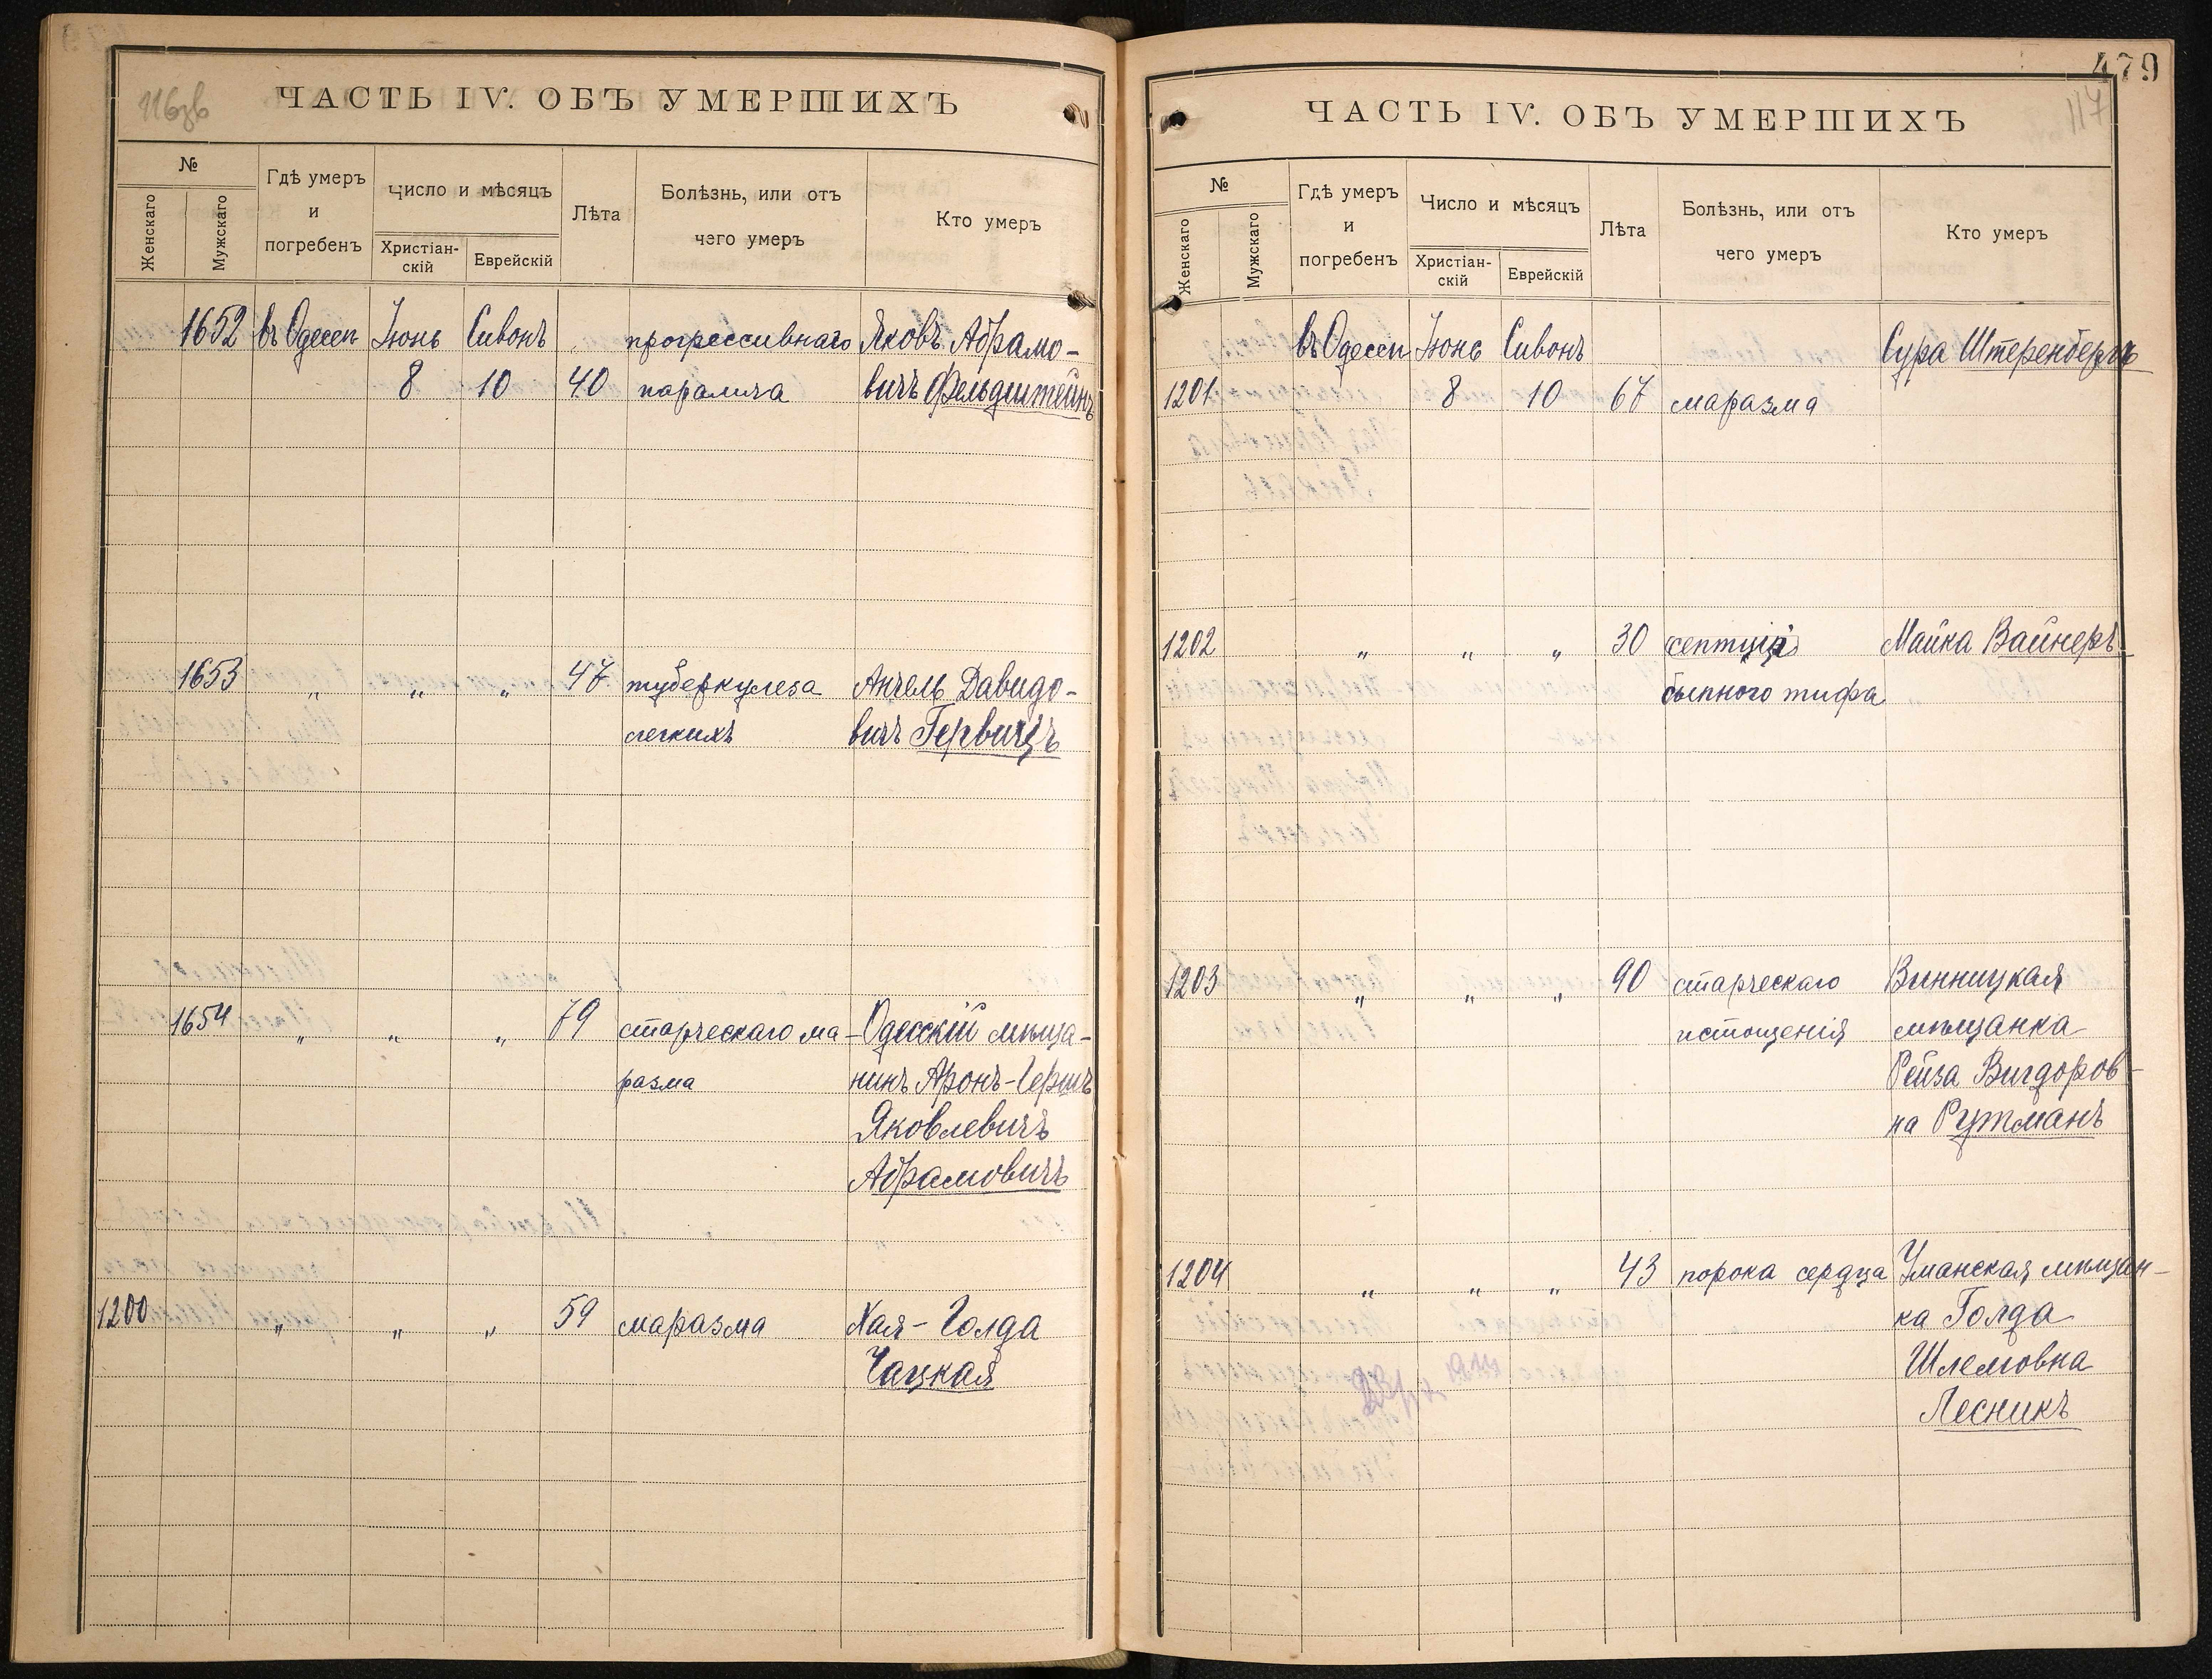 116зв
ЧАСТЬ IV. ОБЪ УМЕРШИХЪ
№
Женскаго
Мужскаго
Гдѣ умеръ
и
погребенъ
Число и мѣсяцъ
Христіан-
скій
Еврейскій
Лѣта
Болѣзнь, или отъ
чего умеръ
Кто умеръ
1652 въ Одессѣ Іюнь Сивонъ прогрессивнаго Яковъ Абрамо-
8 10 40 паралича вичъ Фельдштейнъ
1653 " " " 47 туберкулеза Анчель Давидо-
легкихъ вичъ Гервицъ
1654 " " " 79 старческаго ма- Одесскій мѣща-
разма нинъ Аронъ-Гершъ
Яковлевичъ
Абрамовичъ
1200 " " " 59 маразма Хая-Голда
Чацкая
479
117
ЧАСТЬ IV. ОБЪ УМЕРШИХЪ
№
Женскаго
Мужскаго
Гдѣ умеръ
и
погребенъ
Число и мѣсяцъ
Христіан-
скій
Еврейскій
Лѣта
Болѣзнь, или отъ
чего умеръ
Кто умеръ
въ Одессѣ Іюнь Сивонъ Сура Штеренбергъ
1201 8 10 67 маразма
1202 " " " 30 Майка Вайнеръ
сыпного тифа
1203 " " " 90 старческаго Винницкая
истощенія мѣщанка
Рейза Вигдоров-
на Рутманъ
1204 " " " 43 порока сердца Уманская мѣщан-
ка Голда
Шлемовна
Лесникъ